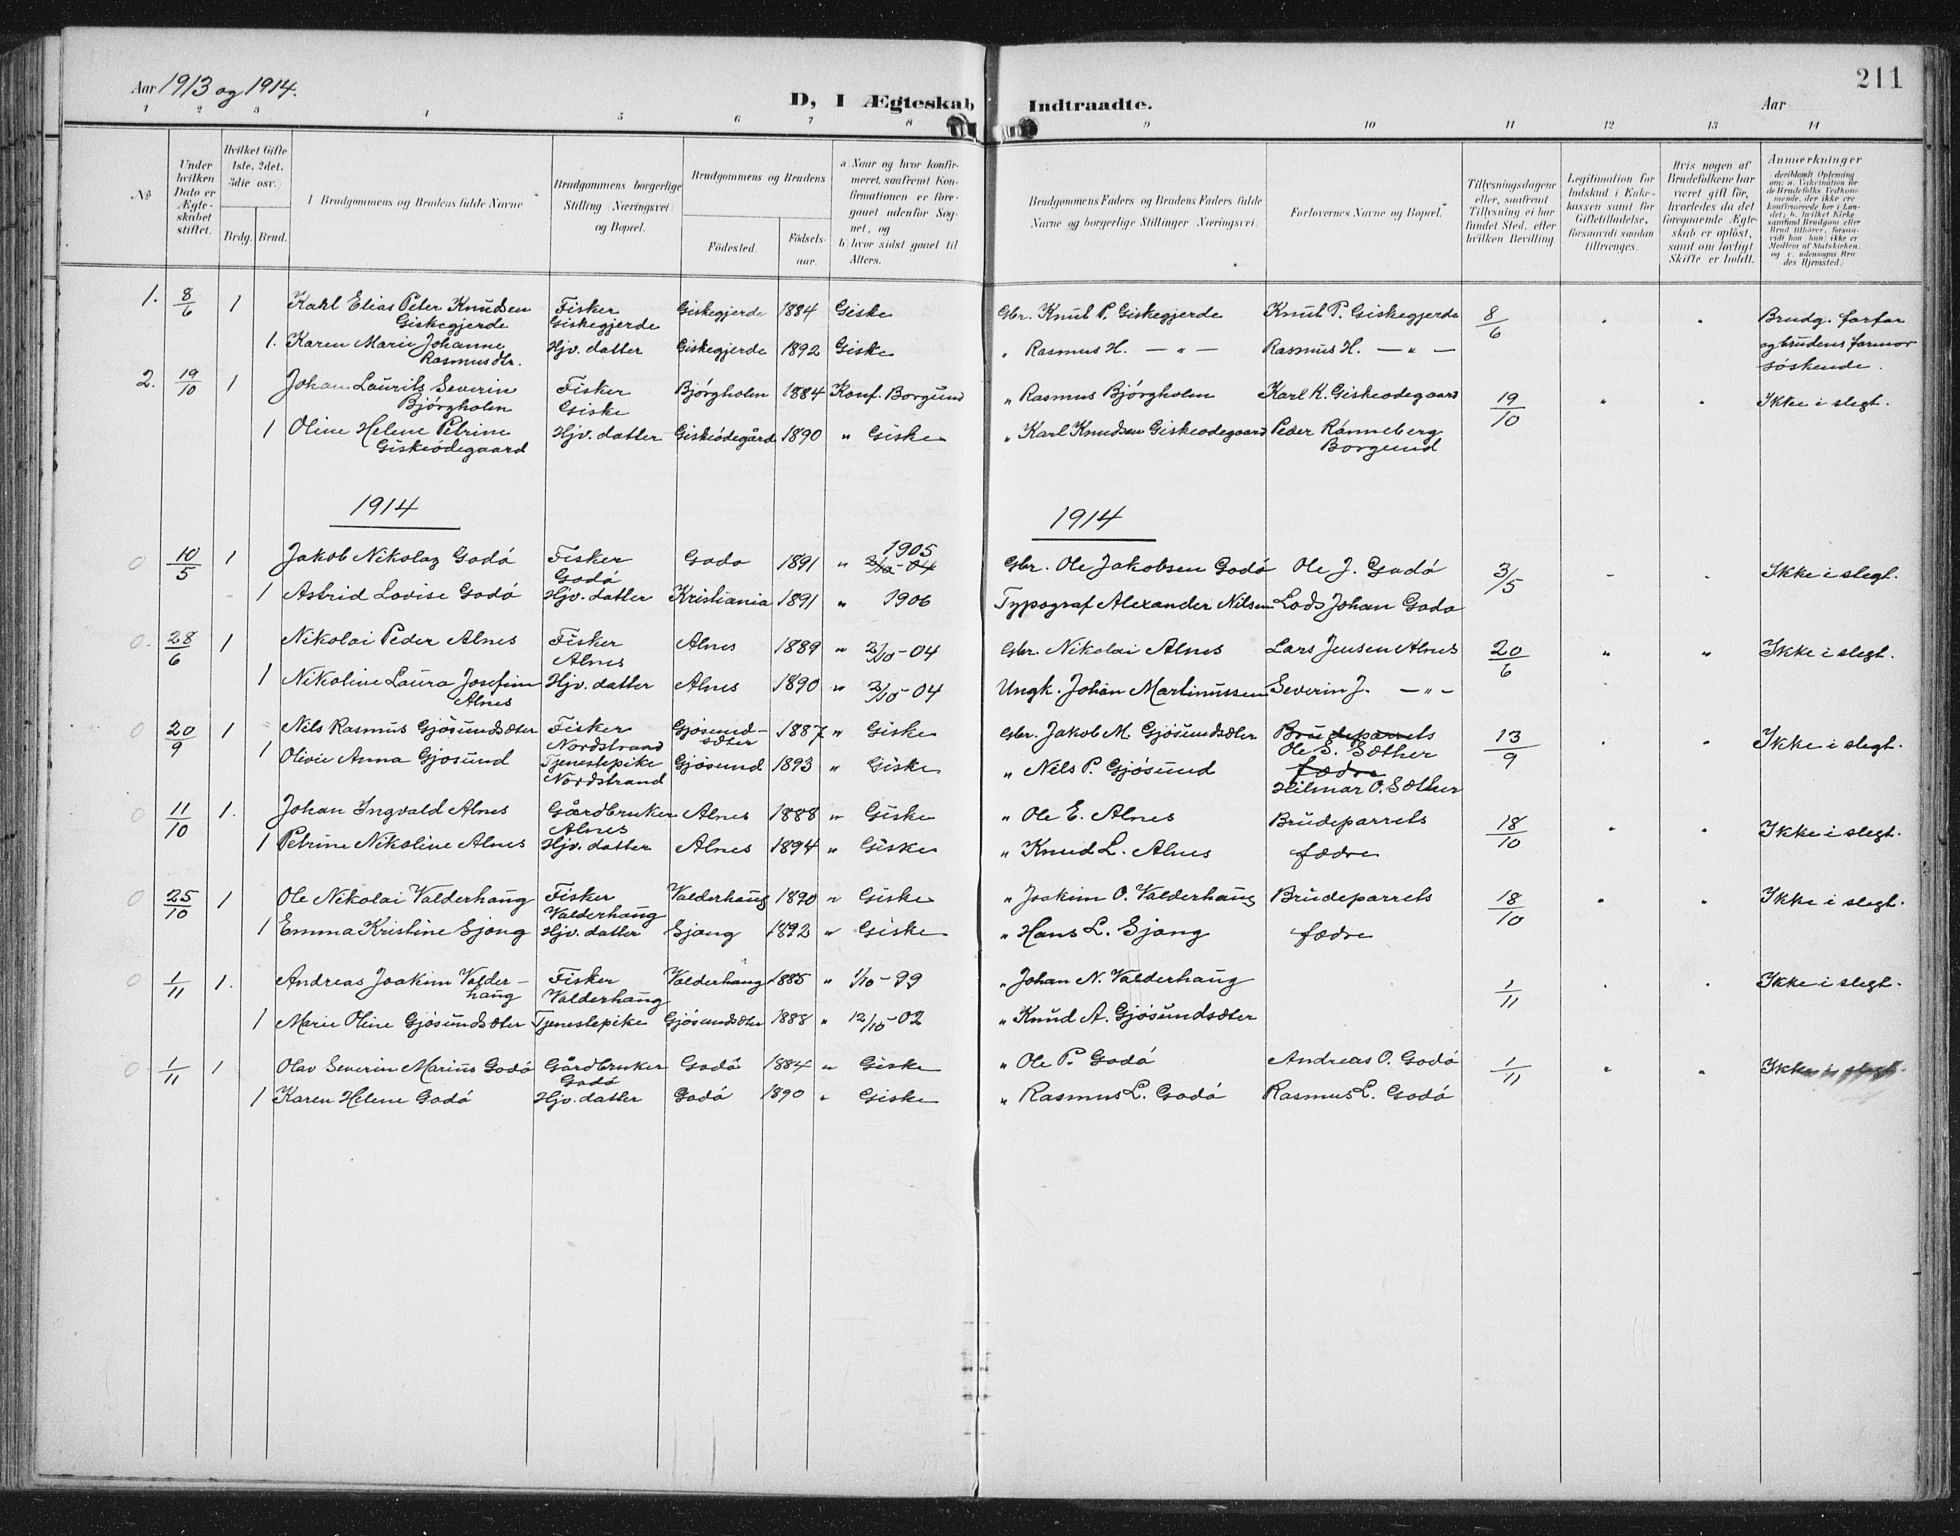 Aar 1913 og 1914.
D, I Ægteskab Indtraadte.
Aar
211
1 2 3 4 5 6 7 8 9 10 11 12 13 14
№
Under hvilken Dato er Ægteskabet stiftet.
Hvilket Gifte (1ste, 2det, 3die osv.)
Brdg. Brud.
Brudgommens og Brudens fulde Navne
Brudgommens borgerlige Stilling (Næringsvei) og Bopæl.
Brudgommens og Brudens
Fødested. Fødselsaar.
a) Naar og hvor konfirmeret, saafremt Konfirmationen er foregaaet udenfor Sognet, og
b) hvor sidst gaaet til Alters.
Brudgommens Faders og Brudens Faders fulde Navne og borgerlige Stillinger (Næringsvei).
Forlovernes Navne og Bopæl.
Tillysningsdagene eller, saafremt Tillysning ei har fundet Sted, efter hvilken Bevilling.
Legitimation for Indskud i Enkekassen samt for Giftetilladelse, forsaavidt saadan tiltrænges.
Hvis nogen af Brudefolkene har været gift før, hvorledes da det foregaaende Ægteskab er opløst, samt om lovligt Skifte er holdt.
Anmerkninger
1. 8/6 1 Karl Elias Peter Knudsen Giskegjerde Fisker Giskegjerde Giskegjerde 1884 Giske Gbr. Knut P. Giskegjerde Knut P. Giskegjerde 8/6 " " Brudg. farfar og brudens farmor søskende.
1. Karen Marie Johanne Rasmusdtr. Hjv. datter Giskegjerde 1892 Giske " Rasmus H. — " — Rasmus H. — " —
2. 19/10 1 Johan Laurits Severin Bjørgholm Fisker Giske Bjørgholm 1884 Konf. Borgund " Rasmus Bjørgholm Karl K. Giskeødegaard 19/10 " " Ikke i slegt.
1 Oline Helene Petrine Giskeødegaard Hjv. datter Giskeødegård 1890 " Giske " Karl Knudsen Giskeødegaard Peder Rønneberg Borgund
1914
1914
10/5 1 Jakob Nikolay Godø Fisker Godø Godø 1891 " 2/10-04 1905 Gbr. Ole Jakobsen Godø Ole J. Godø 3/5 " " Ikke i slegt.
1 Astrid Lovise Godø Hjv. datter Kristiania 1891 " 1906 Typograf Alexander Nilsen Lods Johan Godø
28/6 1 Nikolai Peder Alnes Fisker Alnes Alnes 1889 " 2/10-04 Gbr. Nikolai Alnes Lars Jensen Alnes 20/6 " " Ikke i slegt.
1 Nikoline Laura Josefine Alnes Hjv. datter Alnes 1890 " 2/10-04 Ungk. Johan Martinussen Severin J. — " —
20/9 1 Nils Rasmus Gjøsundsæter Fisker Nordstrand Gjøsundsæter 1887 " Giske Gbr. Jakob M. Gjøsundsæter Brudeparrets Ole S. Sæther 13/9 " " Ikke i slegt.
1 Olivie Anna Gjøsund Tjenestepike Nordstrand Gjøsund 1893 " Giske " Nils P. Gjøsund fædre Hilmar O. Sæther
11/10 1. Johan Ingvald Alnes Gårdbruker Alnes Alnes 1888 " Giske " Ole E. Alnes Brudeparrets 18/10 " " Ikke i slegt.
1 Petrine Nikoline Alnes Hjv. datter Alnes 1894 " Giske " Knud L. Alnes fædre
25/10 1 Ole Nikolai Valderhaug Fisker Valderhaug Valderhaug 1890 " Giske " Joakim O. Valderhaug Brudeparrets 18/10 " " Ikke i slegt.
1 Emma Kristine Sjong Hjv. datter Sjong 1892 " Giske " Hans L. Sjong fædre
1/11 1. Andreas Joakim Valderhaug Fisker Valderhaug Valderhaug 1885 " 1/10-99 " Johan N. Valderhaug 1/11 " " Ikke i slegt.
1 Marie Oline Gjøsundsæter Tjenestepike Gjøsundsæter 1888 " 12/10-02 " Knud A. Gjøsundsæter
1/11 1 Olav Severin Marius Godø Gårdbruker Godø Godø 1884 " Giske " Ole P. Godø Andreas O. Godø 1/11 " " Ikke i slegt.
1 Karen Helene Godø Hjv. datter Godø 1890 " Giske " Rasmus L. Godø Rasmus L. Godø